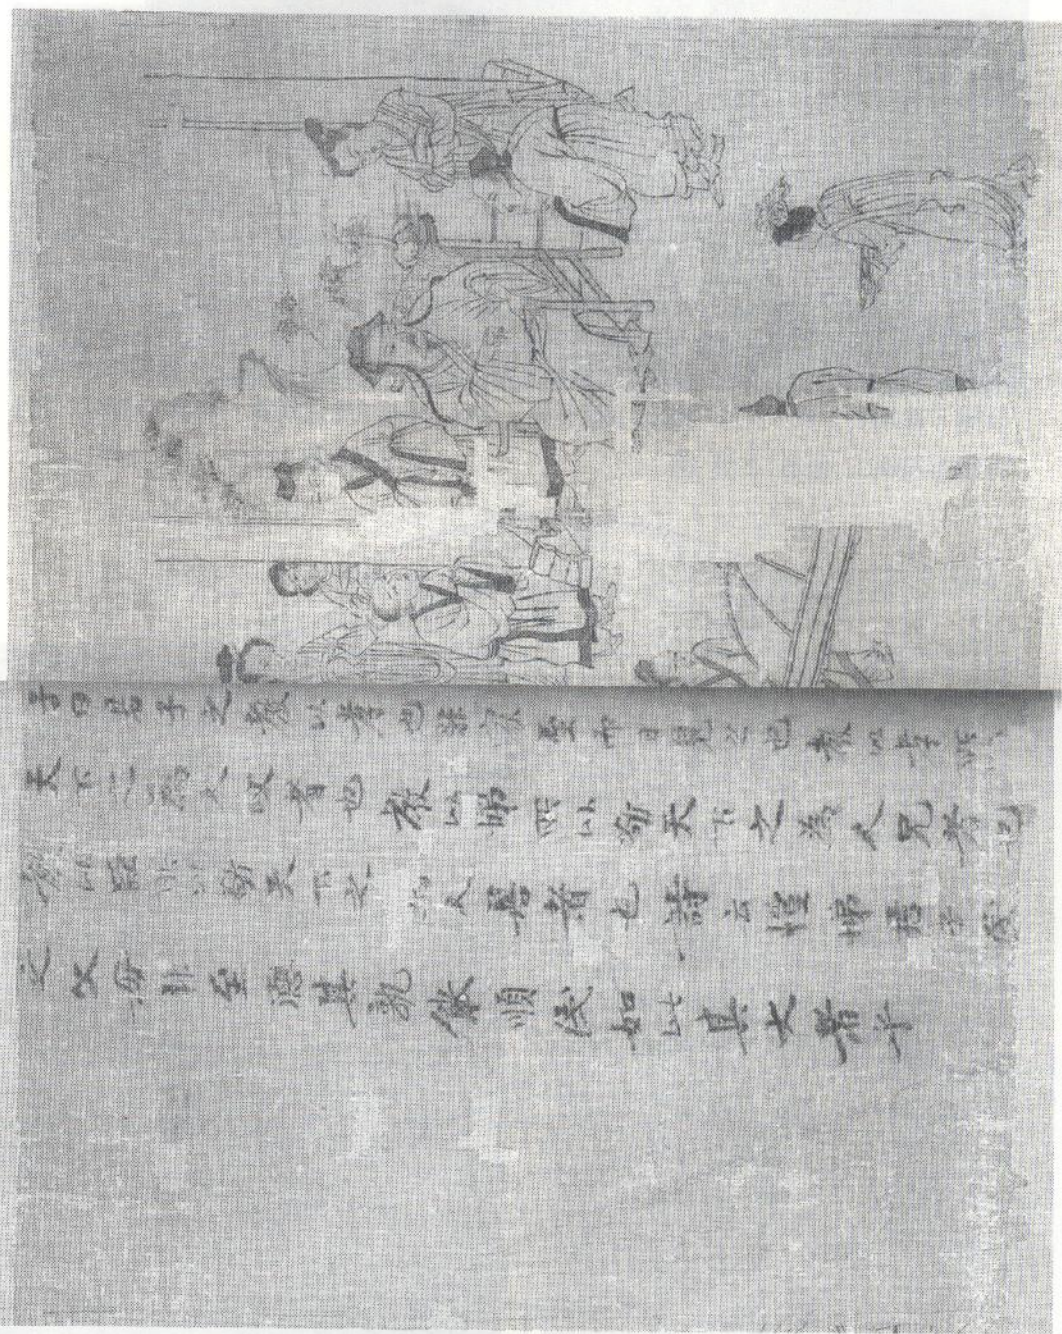 子曰君子之教以孝也非家至而日見之也教以孝所
天下之為人父者也教以悌所以敬天下之為人兄者也
教以臣所以敬天下之為人君者也詩云愷悌君子民
之父母非至德其孰能順民如此其大者乎